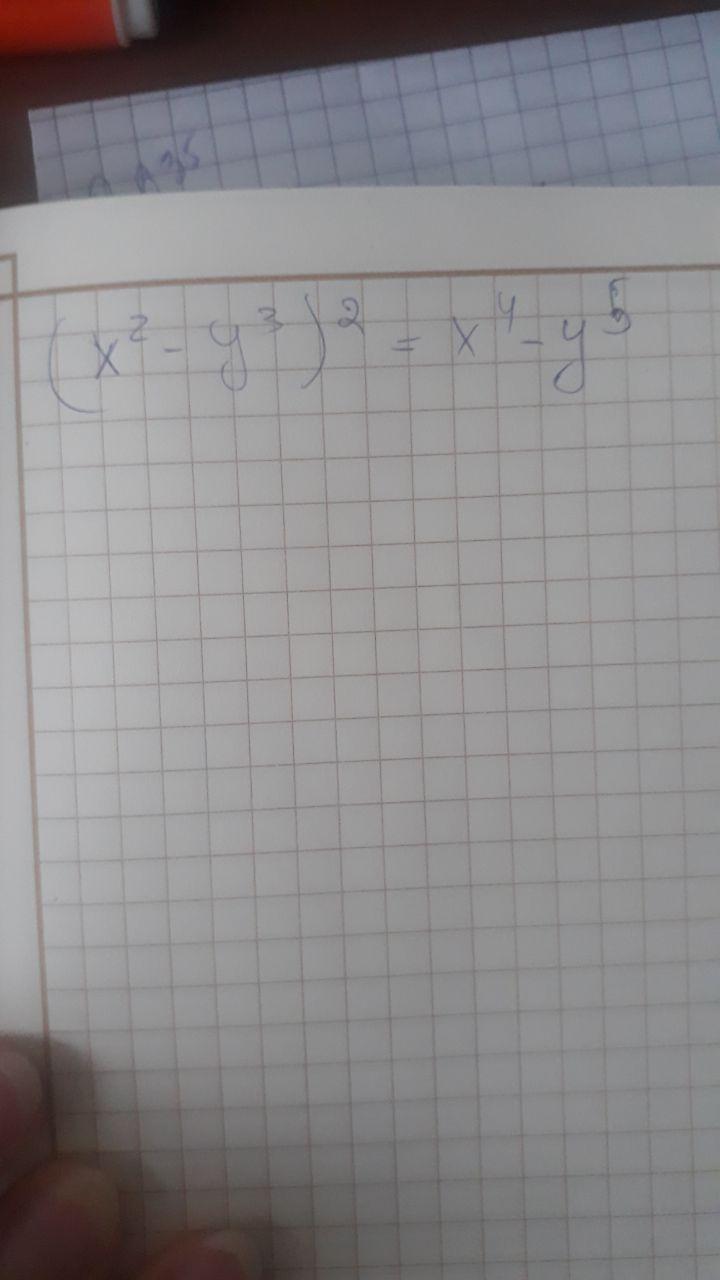 (x² - y³)² = x⁴ - y⁵